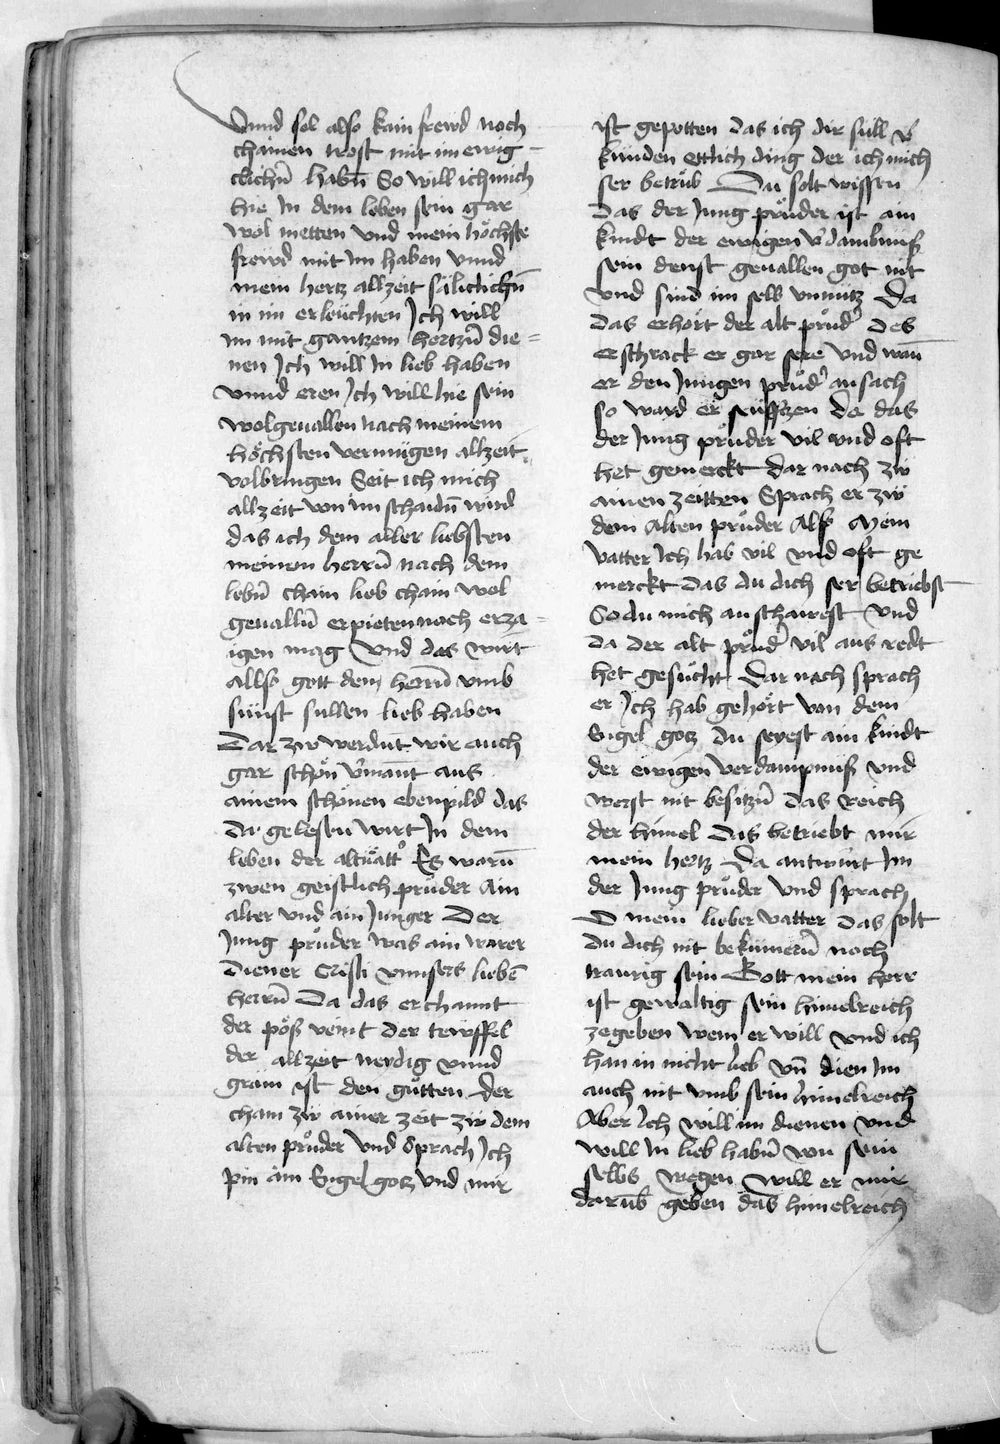 Vnnd sol also kain frewd noch
chainen trost mit im ewig-
clichn̄ habn̄ So will ich mich
hie In dem leben sein gar
wol metten vnd mein höchste
frewd mit Im haben vnnd
mein hertz allzeit säliclichn̄
in im erleuchten Ich will
im mit gantzem hertzn̄ die=
nen Ich will In lieb haben
vnnd eren Ich will hie sein
wolgeuallen nach meinem
höchsten vermügen allzeit
volbringen Seit ich mich
allzeit von im schaidn̄ wird
das ich dem aller liebsten
meinem herrn̄ nach dem
lebn̄ chain lieb chain wol
geualln̄ erpieten noch erza=
igen mag Vnd das wirt
allso gott dem herrn̄ vmb
sünst sullen lieb haben
Dar zw werdnt wir auch
gar schön v̓mant aus
ainem schönen ebenpild das
da gelesen wirt In dem
leben der altuätt̓ Es warn̄
zwen geistlich prüder Ain
alter vnd ain Junger Der
Jung prüder was ain warer
diener Cristi vnnsers liebn̄
herrn̄ Da das erchannt
der pöß veint der tewffel
der allzeit neydig vnnd
gram ist den gůtten der
cham zw ainer zeit zw dem
alten prüder vnd sprach Ich
pin ain Engel gotz vnd mir
ist gepotten das ich dir süll v̓
künden ettlich ding der ich mich
ser betrüb Du solt wissen
das der Jung prüder ist ain
kindt der ewigen v̓dambnuß
sein dienst geuallen got nit
vnd sind im selb vnnütz Da
das erhört der alt prüd̓ des
erschrack er gar sere vnd wan̄
er den Jungen prüd̓ an sach
so ward er seüfftzen Da das
der Jung prüder vil vnd oft
het gemerckt dar nach zw
ainen zeitten Sprach er zw
dem alten prüder Also Mein
vatter Ich hab vil vnd oft ge
merckt das du dich ser betriebst
So du mich anschawest Vnd
da der alt prüd̓ vil aus redt
het gesücht Dar nach sprach
er Ich hab gehört von dem
Engel gotz du seyest ain kindt
der ewigen verdampnuß vnd
werst nit besitzn̄ das reich
der himel Das betriebt mir
mein hertz Da antwürt Im
der Jung prüder vnd sprach
O mein lieber vatter das solt
du dich nit bekümern̄ noch
traurig sein Gott mein herr
ist gewaltig sein himelreich
zegeben wem er will vnd ich
han in nicht lieb vn̄ dien Im
auch nit vmb sein himelreich
Aber Ich will im dienen vnd
will In lieb habn̄ von sein
selbs wegen Will er mir
darūb geben das himelreich